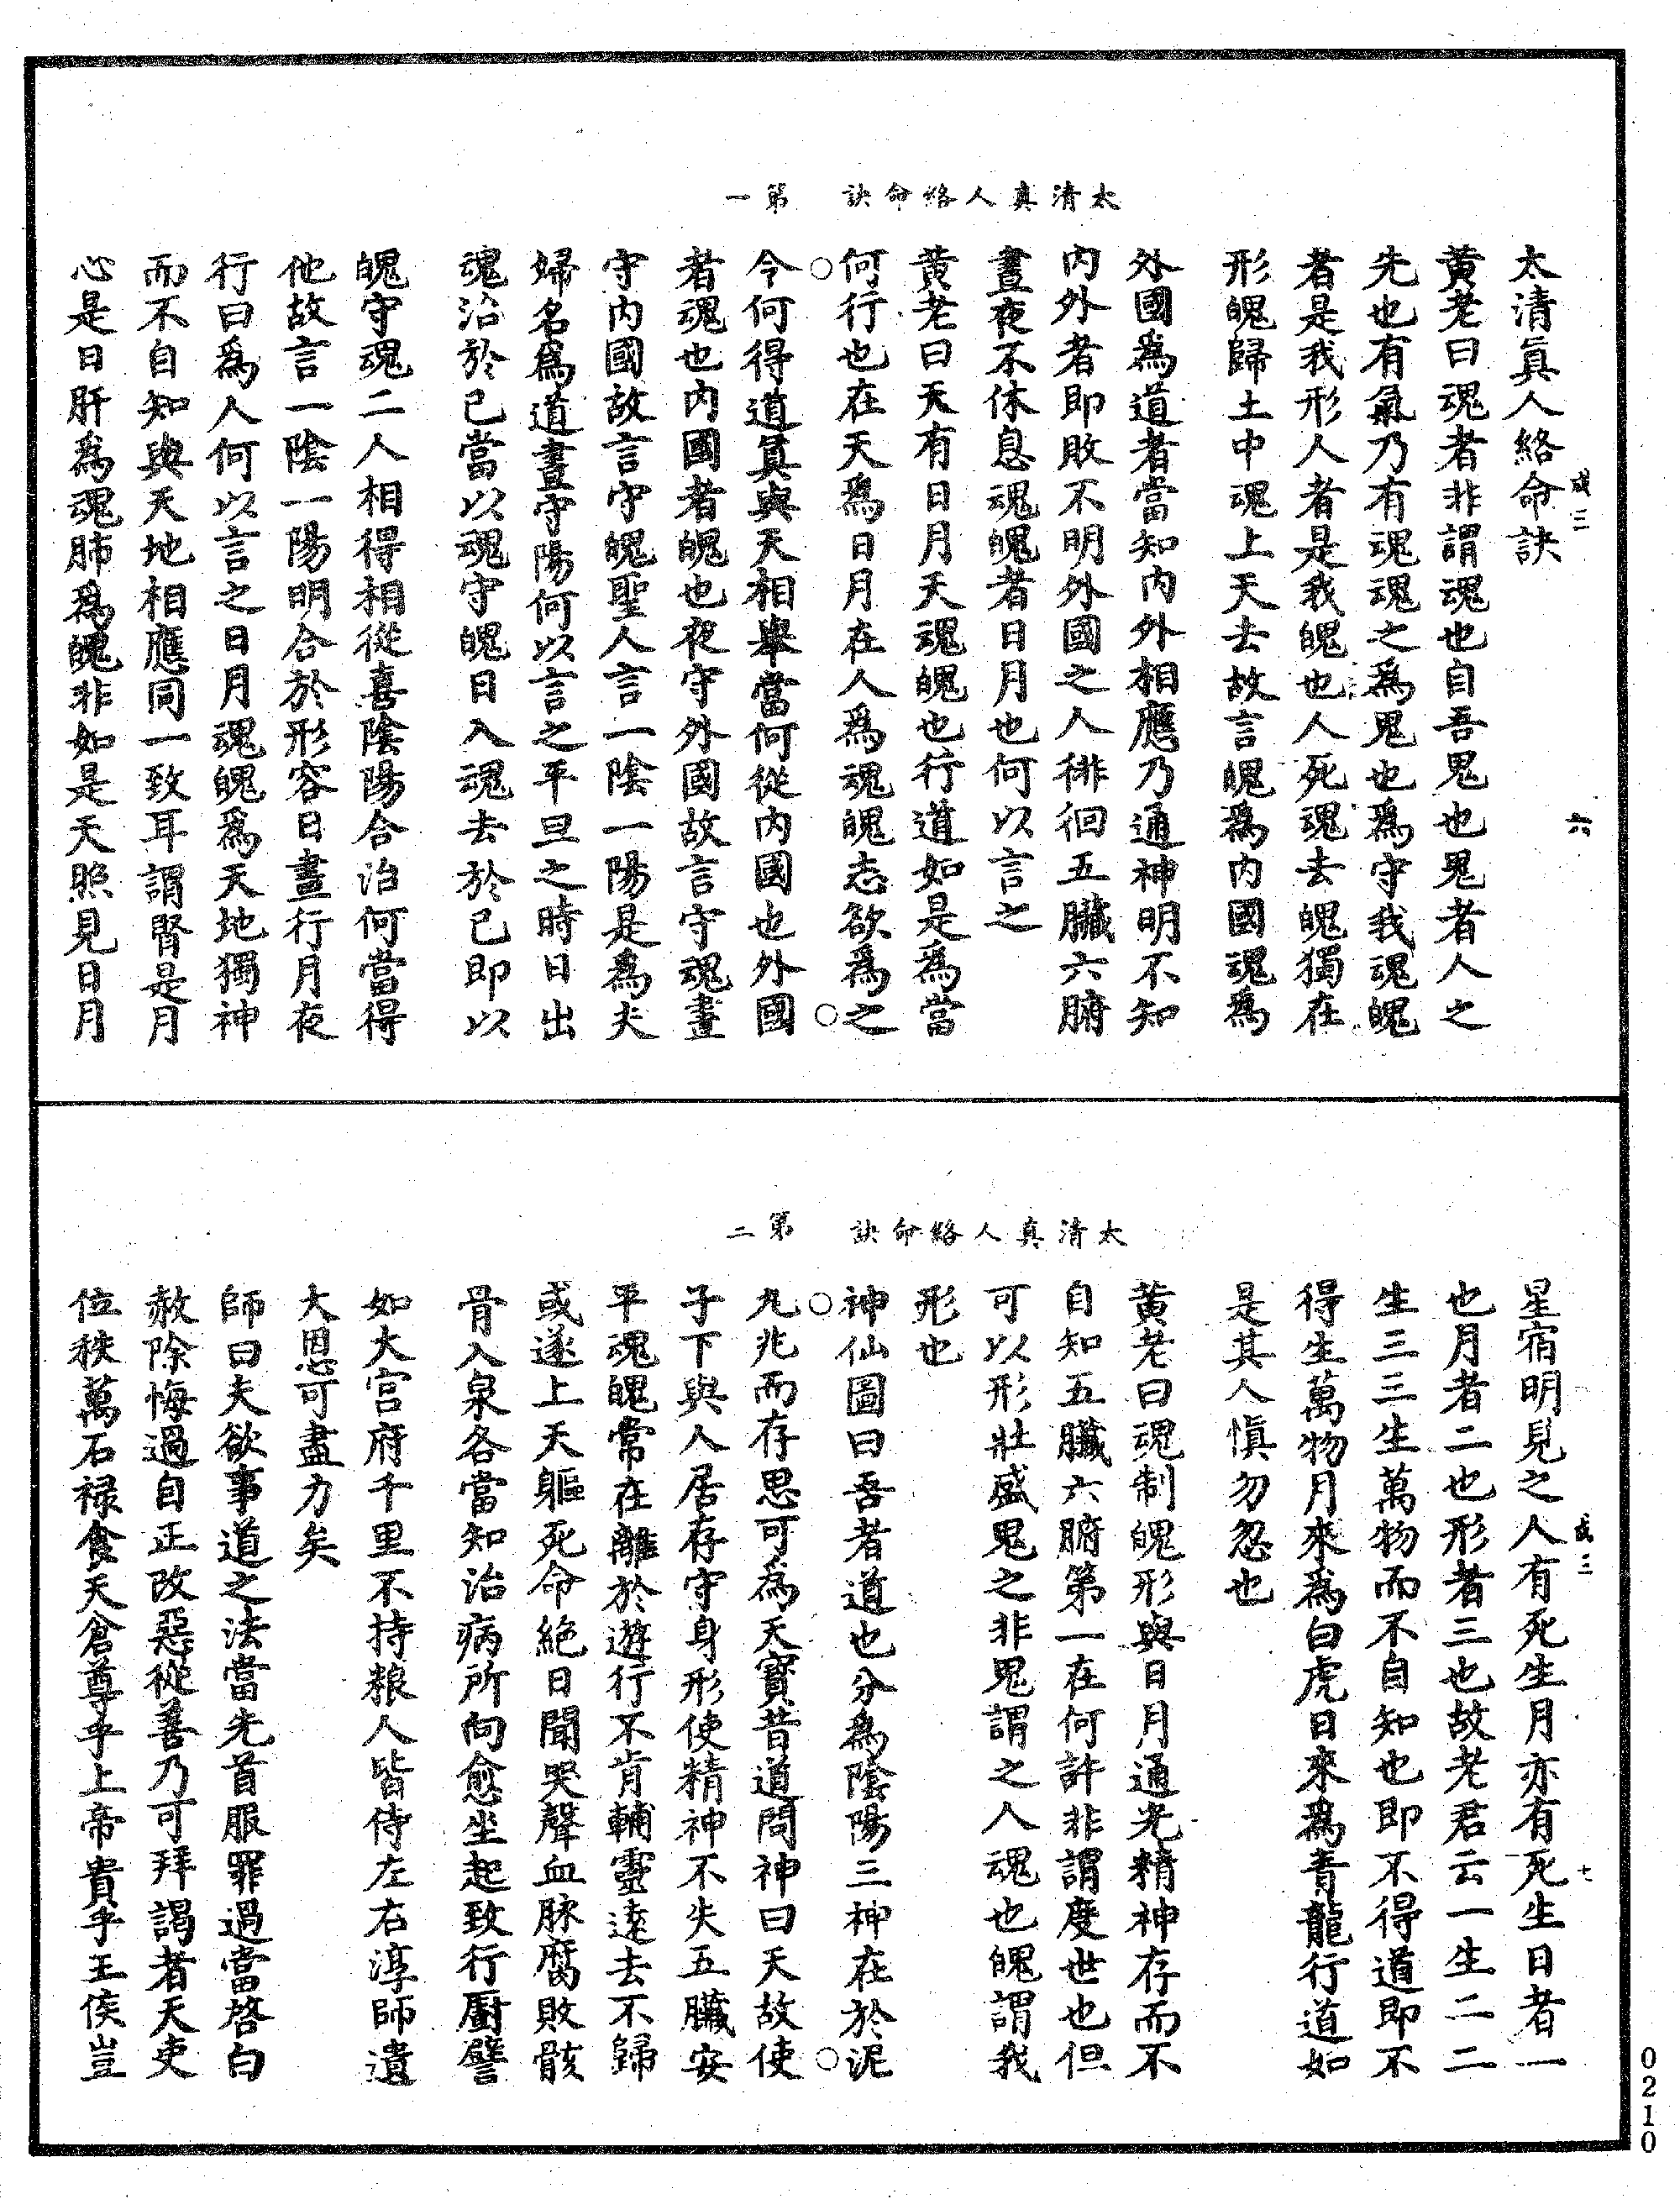 太清真人絡命訣　第一
太清真人絡命訣
黄老曰魂者非謂魂也自吾鬼也鬼者人之
先也有氣乃有魂魂之爲鬼也爲守我魂魄
者是我形人者是我魄也人死魂去魄獨在
形魄歸土中魂上天去故言魄爲内國魂爲
外國爲道者當知内外相應乃通神明不知
内外者即敗不明外國之人徘徊五臟六腑
晝夜不休息魂魄者日月也何以言之
黄老曰天有日月天魂魄也行道如是爲當
何行也在天爲日月在人爲魂魄志欲爲之
今何得道真與天相舉當何從内國也外國
者魂也内國者魄也夜守外國故言守魂晝
守内國故言守魄聖人言一陰一陽是爲夫
婦名爲道晝守陽何以言之平旦之時日出
魂治於已當以魂守魄日入魂去於已即以
魄守魂二人相得相從喜陰陽合治何當得
他故言一陰一陽明合於形容日晝行月夜
行曰爲人何以言之日月魂魄爲天地獨神
而不自知與天地相應同一致耳謂腎是月
心是日肝爲魂肺爲魄非如是天照見日月
成三
六
太清真人絡命訣　第二
星宿明見之人有死生月亦有死生日者一
也月者二也形者三也故老君云一生二二
生三三生萬物而不自知也即不得道即不
得生萬物月來爲白虎日來爲青龍行道如
是其人慎勿忽也
黄老曰魂制魄形與日月通光精神存而不
自知五臟六腑第一在何許非謂度世也但
可以形壯盛鬼之非鬼謂之人魂也魄謂我
形也
神仙圖曰吾者道也分爲陰陽三神在於泥
九兆而存思可爲天寶昔道問神曰天故使
子下與人居存守身形使精神不失五臟安
平魂魄常在離於遊行不肯輔靈遠去不歸
或遂上天軀死命絶日聞哭聲血脉腐敗骸
骨入泉各當知治病所向愈坐起致行厨譬
如大官府千里不持粮人皆侍左右淳師遺
大恩可盡力矣
師曰夫欲事道之法當先首服罪過當啓白
赦除悔過自正改惡從善乃可拜謁者天吏
位秩萬石禄食天倉尊乎上帝貴乎王侯豈
成三
七
0210